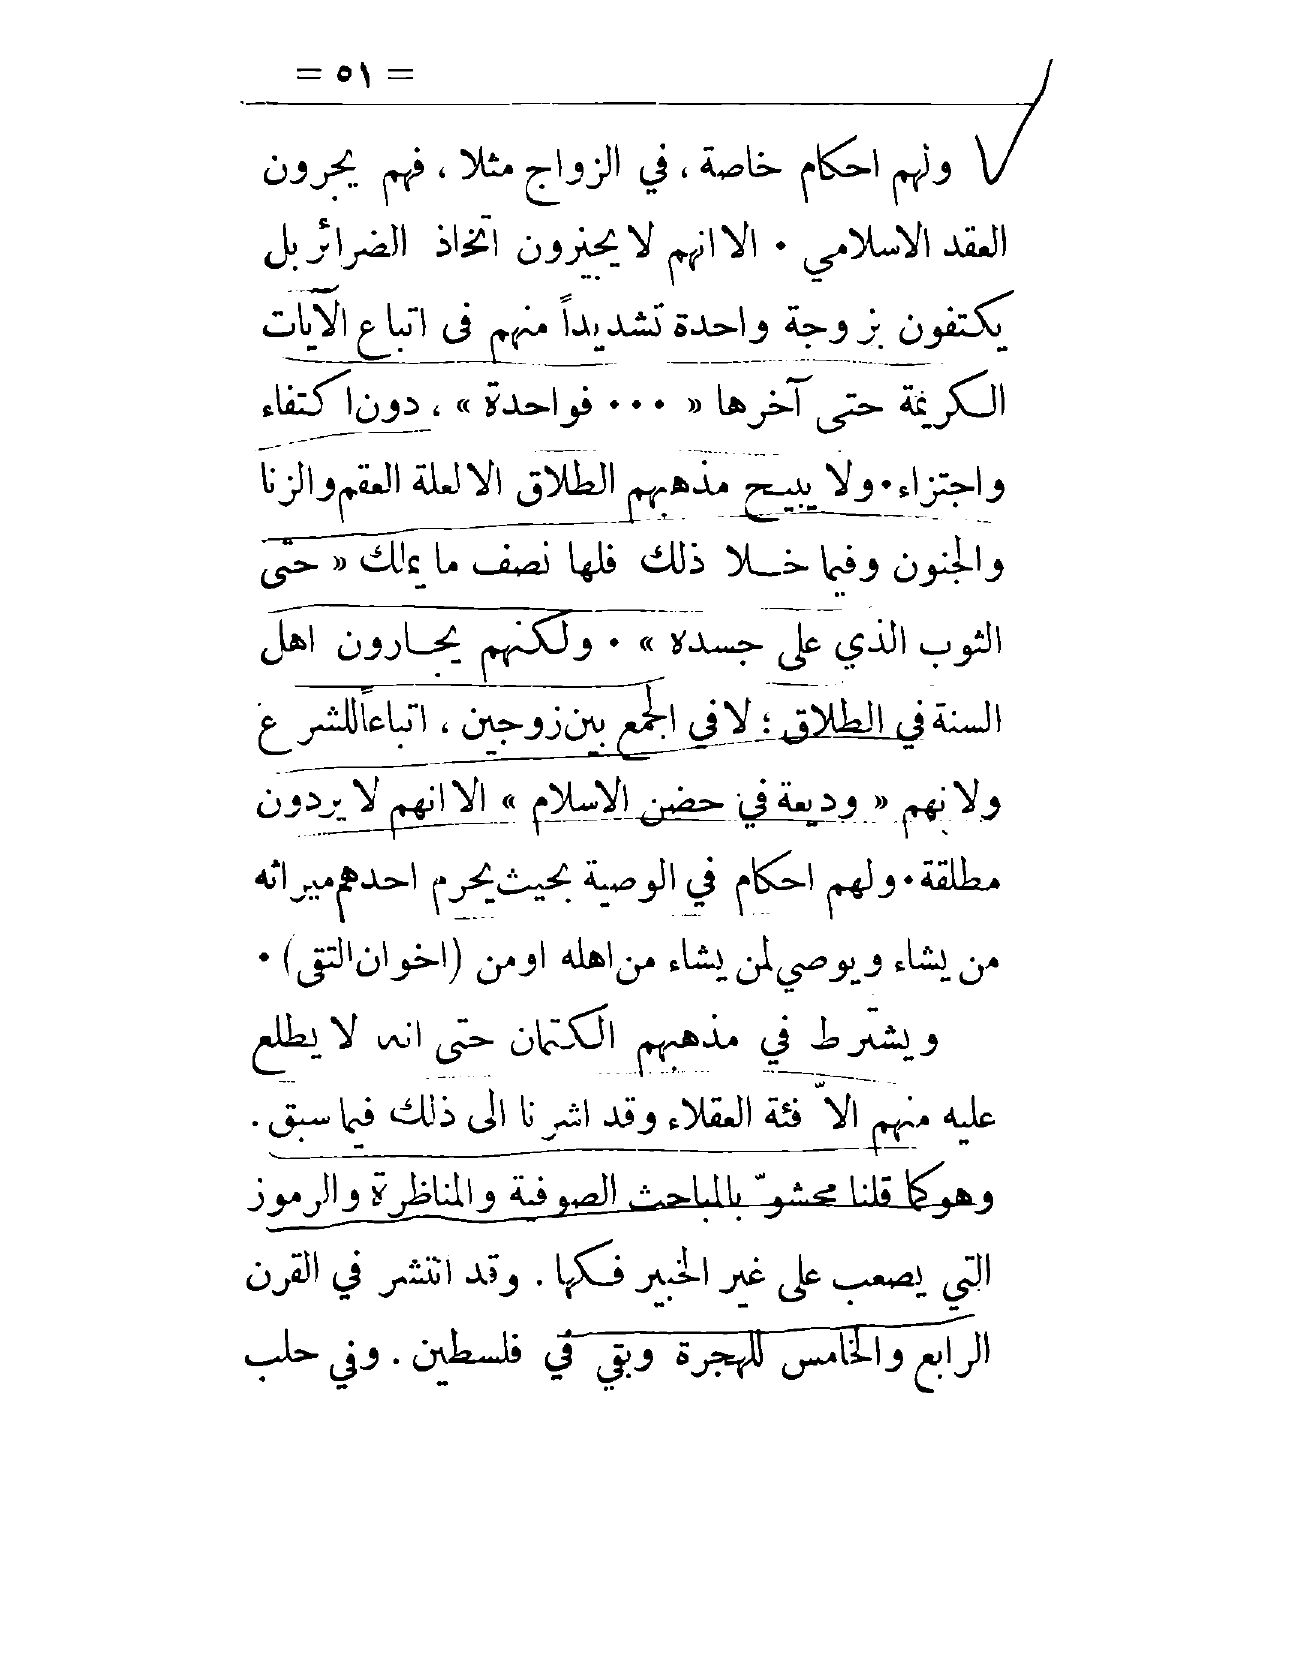 = ٥١ =
ولهم احكام خاصة ، في الزواج مثلا ، فهم يجرون
العقد الاسلامي . الا انهم لا يجيزون اتخاذ الضرائر بل
يكتفون بزوجة واحدة تشديداً منهم فى اتباع الآيات
الكريمة حتى آخرها « ... فواحدة » ، دون اكتفاء
واجتزاء . ولا يبيح مذهبهم الطلاق الا لعلة العقم والزنا
والجنون وفيما خلا ذلك فلها نصف ما يملك « حتى
الثوب الذي على جسده » . ولكنهم يجارون اهل
السنة في الطلاق ؛ لا في الجمع بين زوجين ، اتباعاً للشرع
ولانهم « وديعة في حضن الاسلام » الا انهم لا يردون
مطلقة . ولهم احكام في الوصية بحيث يحرم احدهم ميراثه
من يشاء ويوصي لمن يشاء من اهله او من (اخوان التقى) .
ويشترط في مذهبهم الكتمان حتى انه لا يطلع
عليه منهم الاّ فئة العقلاء وقد اشرنا الى ذلك فيما سبق .
وهو كما قلنا محشوّ بالمباحث الصوفية والمناظرة والرموز
التي يصعب على غير الخبير فكها . وقد انتشر في القرن
الرابع والخامس للهجرة وبقي في فلسطين . وفي حلب